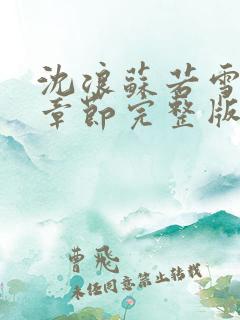 沈浪蘇若雪
章節完整版
曹飛
未经同意禁止转载